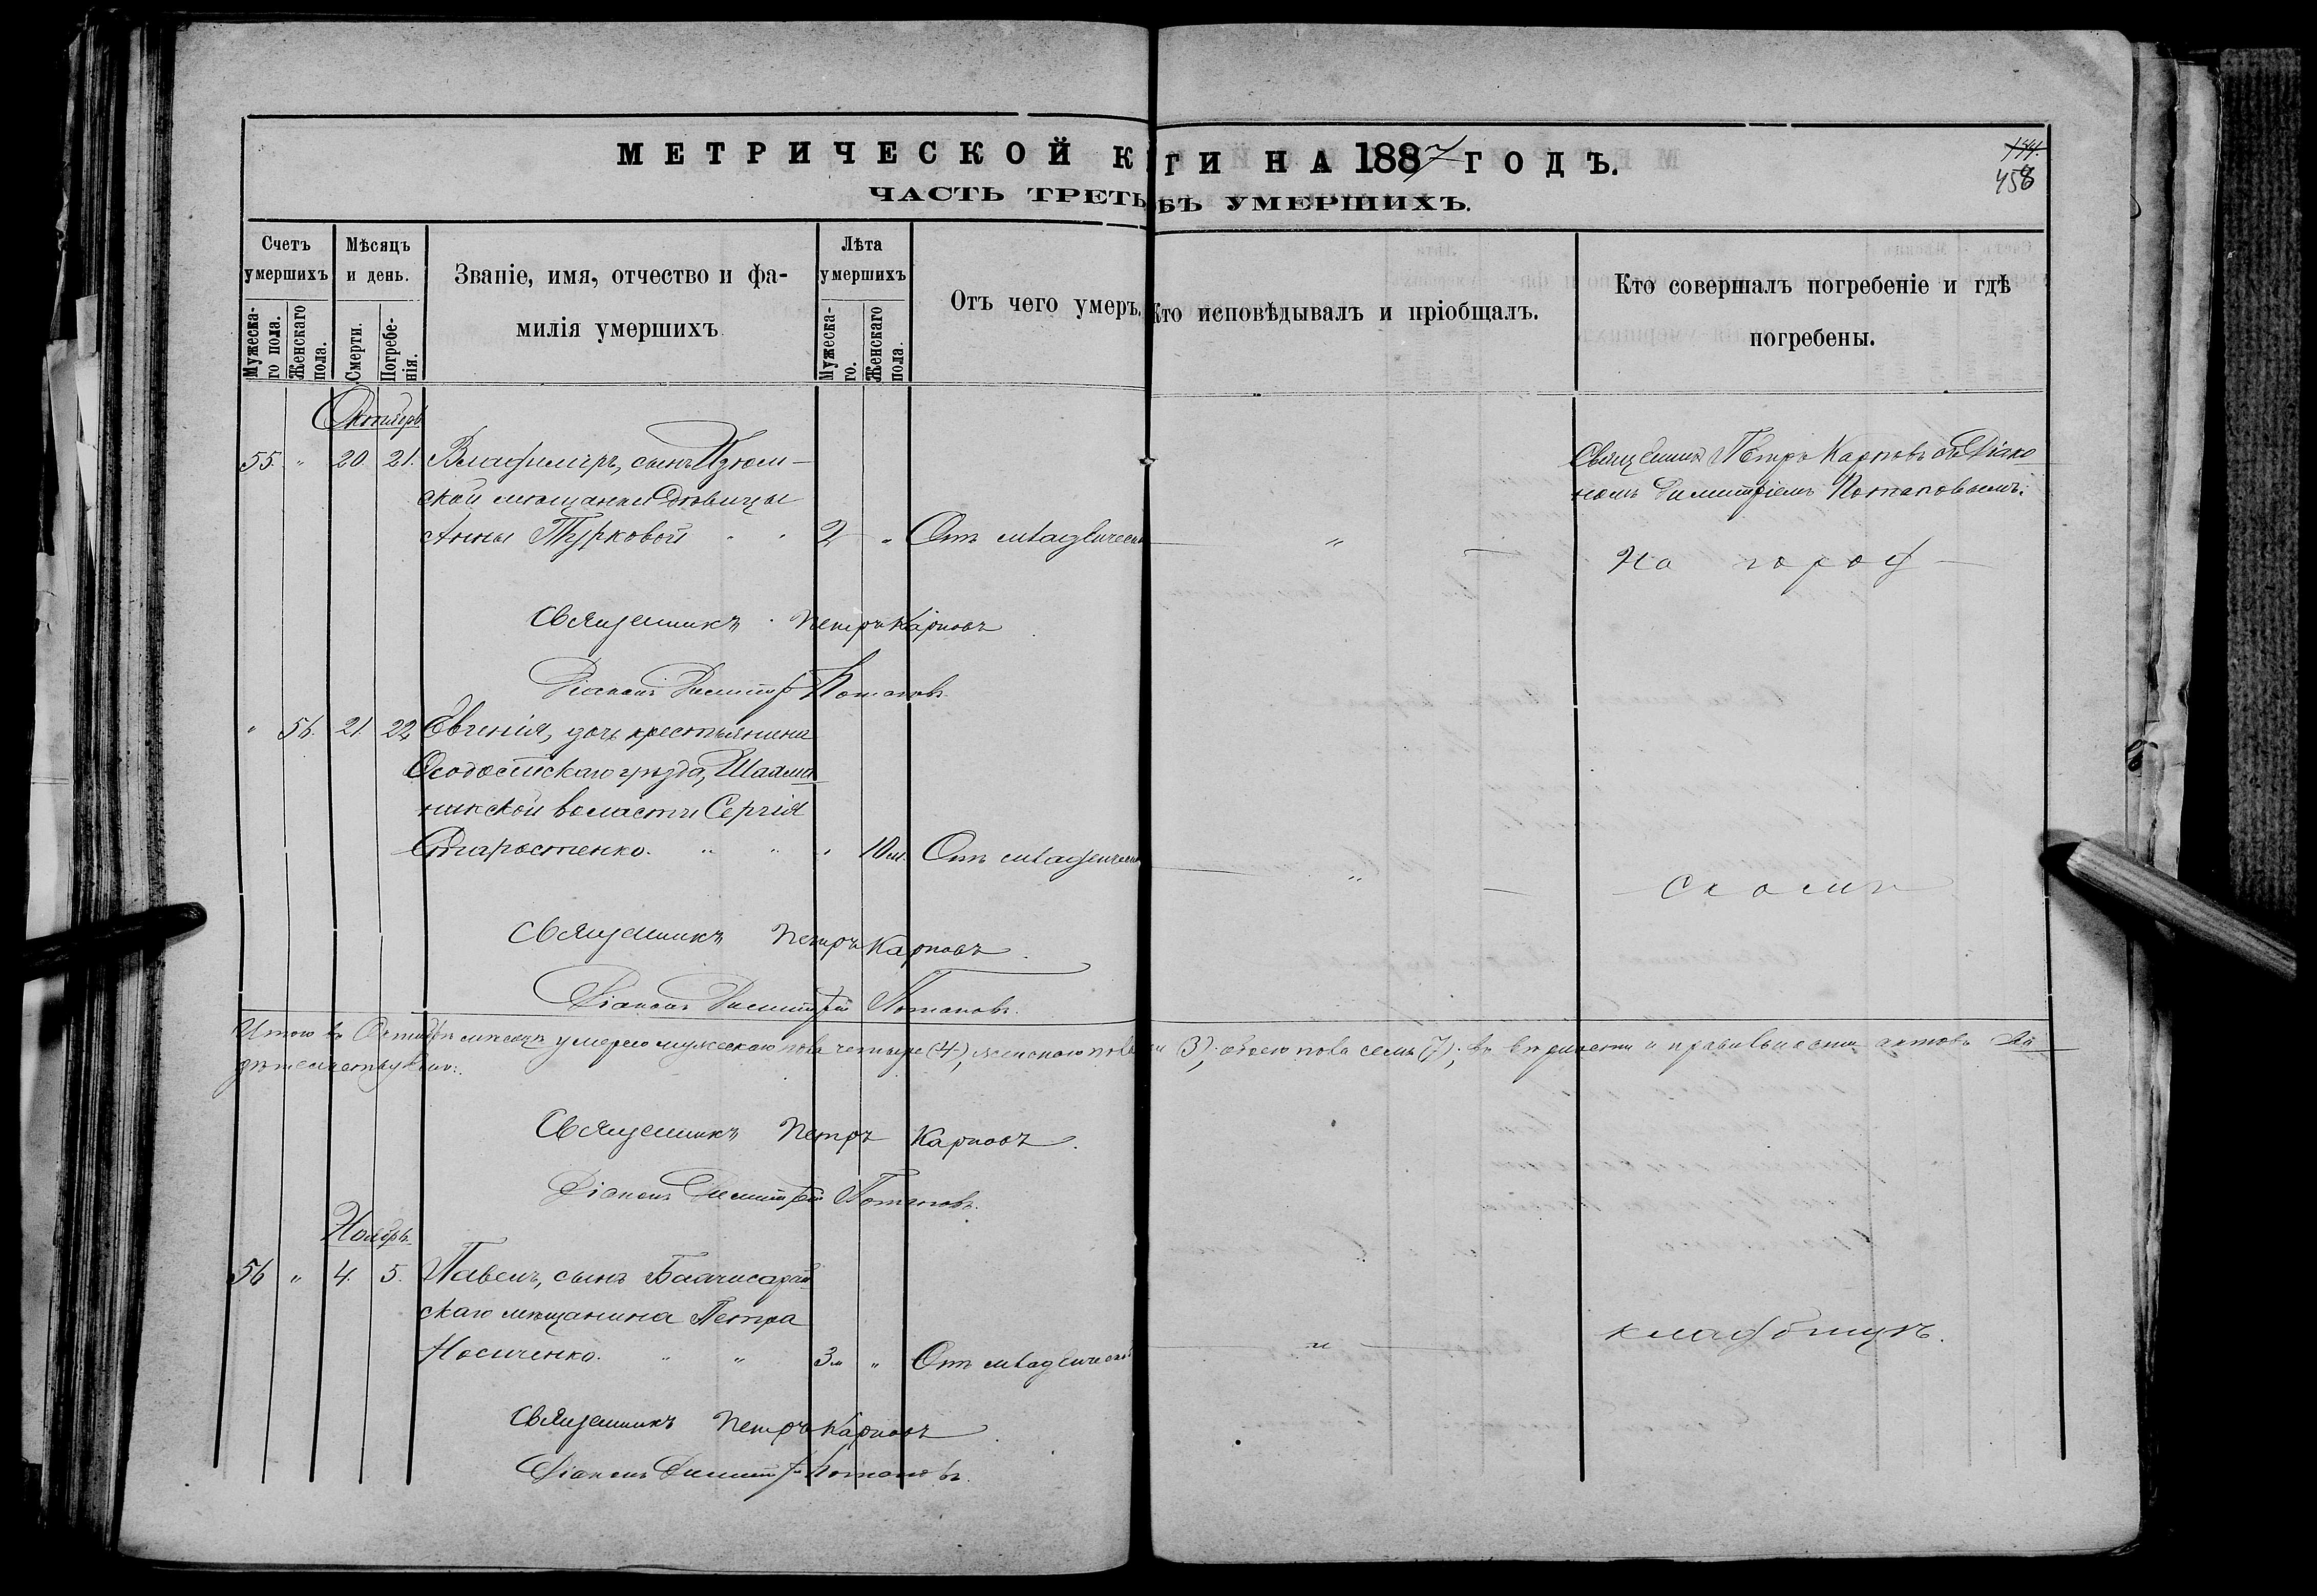 МЕТРИЧЕСКОЙ К ГИ НА 1887 ГОДЪ.
ЧАСТЬ ТРЕТЬ БЪ УМЕРШИХЪ.
458
Счетъ умершихъ
Мужеска-го пола.
Женскаго пола.
Мѣсяцъ и день.
Смерти.
Погребе-нія.
Званіе, имя, отчество и фа-
милія умершихъ
Лѣта умершихъ
Мужеска-го.
Женскаго пола.
Отъ чего умеръ.
Кто исповѣдывалъ и пріобщалъ.
Кто совершалъ погребеніе и гдѣ
погребены.
Октябрь
55. " 20. 21. Владимиръ, сынъ Изюм-
ской мѣщанки дѣвицы
Анны Турковой " " 2 " Отъ младенческ "
Священникъ Петръ Карповъ съ Діако
номъ Димитріемъ Потаповымъ.
На город
Священникъ Петръ Карповъ
Діаконъ Димитр Потаповъ
" 56. 21. 22 Евгенія, дочь крестьянина
Ѳеодосійскаго уѣзда,
ской волости Сергія
Старостенко. " " " 10 м. Отъ младенческ "
скомъ
Священникъ Петръ Карповъ.
Діаконъ Димитрій Потаповъ.
Итого въ Октябрѣ мѣсяцѣ умерло мужескаго пола четыре (4), женскаго пола ри (3), обоего пола семь (7); въ вѣрности и правильности актовъ сви
дѣтельствуемъ:
Священникъ Петръ Карповъ.
Діаконъ Димитрій Потаповъ.
Ноябрь.
56 " 4. 5. Павелъ, сынъ Бахчисарай
скаго мѣщанина Петра
Носиченко. " " 3 м " Отъ младенческой "
кладбищѣ.
Священникъ Петръ Карповъ
Діаконъ Димитрій Потаповъ.